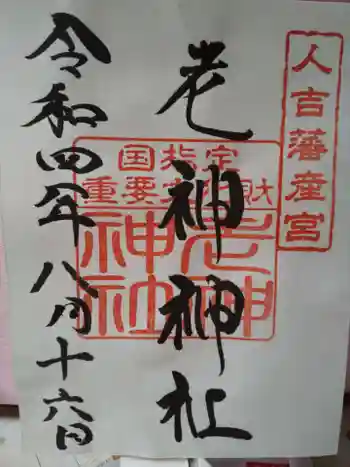 人吉藩産宮
老神神社
国指定
重要文化財
老神
神社
令和四年八月十六日